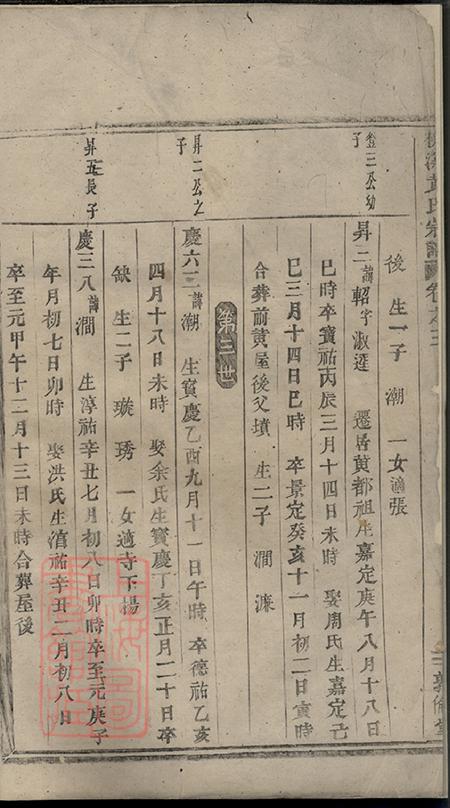 黃氏宗譜 卷之三
後 生一子 潮 一女適張
登三公幼子
昇二 諱軺字淑遲 遷居黃都祖生嘉定庚午八月十八日
巳時卒寶祐丙辰三月十四日未時 娶周氏生嘉定己
巳三月十四日巳時 卒景定癸亥十一月初二日寅時
合葬前黃屋後父墳 生二子 澗 濂
第三世
昇二公之子
慶六二 諱潮 生寶慶乙酉九月十一日午時 卒德祐乙亥
四月十八日未時 娶余氏生寶慶丁亥正月二十日卒
缺 生二子 璇 琇 一女適寺下楊
昇五長子
慶三八 諱澗 生淳祐辛丑七月初八日卯時卒至元庚子
年月初七日卯時 娶洪氏生淳祐辛丑二月初八日
卒至元甲午十二月十三日未時合葬屋後